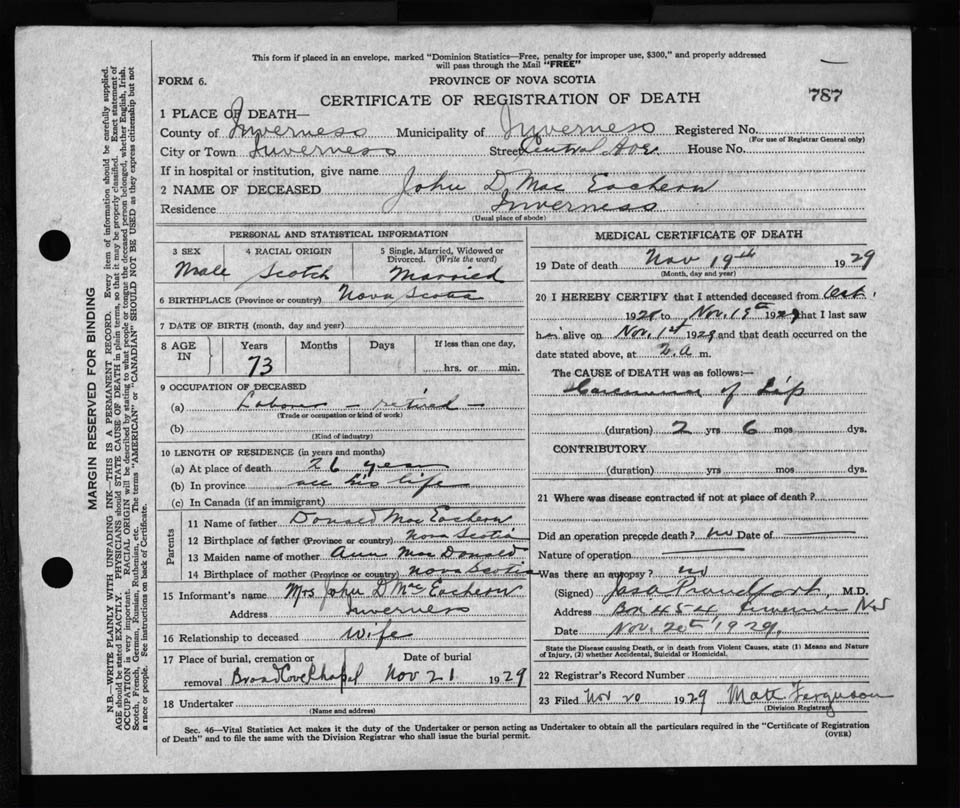 This form if placed in an envelope, marked "Dominion Statistics—Free, penalty for improper use, $300," and properly addressed
will pass through the Mail "FREE"
FORM 6.
PROVINCE OF NOVA SCOTIA
CERTIFICATE OF REGISTRATION OF DEATH
787
1 PLACE OF DEATH—
County of Inverness Municipality of Inverness Registered No.
(For use of Registrar General only)
City or Town Inverness Street Central Ave House No.
If in hospital or institution, give name
2 NAME OF DECEASED John D. Mac Eachern
Residence Inverness
(Usual place of abode)
PERSONAL AND STATISTICAL INFORMATION
3 SEX 4 RACIAL ORIGIN 5 Single, Married, Widowed or
Divorced. (Write the word)
Male Scotch Married
6 BIRTHPLACE (Province or country) Nova Scotia
7 DATE OF BIRTH (month, day and year)
8 AGE IN Years Months Days If less than one day,
73 hrs. or min.
9 OCCUPATION OF DECEASED
(a) Labour — retired —
(Trade or occupation or kind of work)
(b)
(Kind of industry)
10 LENGTH OF RESIDENCE (in years and months)
(a) At place of death 26 years
(b) In province all his life
(c) In Canada (if an immigrant)
Parents
11 Name of father Donald Mac Eachern
12 Birthplace of father (Province or country) Nova Scotia
13 Maiden name of mother Ann Mac Donald
14 Birthplace of mother (Province or country) Nova Scotia
15 Informant's name Mrs John D Mac Eachern
Address Inverness
16 Relationship to deceased wife
17 Place of burial, cremation or Date of burial
removal Broad Cove Chapel Nov 21 1929
18 Undertaker
(Name and address)
MEDICAL CERTIFICATE OF DEATH
19 Date of death Nov 19th 1929
(Month, day and year)
20 I HEREBY CERTIFY that I attended deceased from Oct.
to Nov. 19th 1929 that I last saw
him alive on Nov. 1st 1929 and that death occurred on the
date stated above, at 2. a m.
The CAUSE of DEATH was as follows:—
Carcinoma of Lip
(duration) 2 yrs 6 mos dys.
CONTRIBUTORY
(duration) yrs mos dys.
21 Where was disease contracted if not at place of death?
Did an operation precede death? no Date of —
Nature of operation —
Was there an autopsy? no
(Signed) Jas A Proudfoot, M.D.
Address Box 454, Inverness NS
Date Nov. 20th 1929,
State the Disease causing Death, or in death from Violent Causes, state (1) Means and Nature
of Injury, (2) whether Accidental, Suicidal or Homicidal.
22 Registrar's Record Number
23 Filed Nov 20 1929 Matt Ferguson
(Division Registrar)
Sec. 46—Vital Statistics Act makes it the duty of the Undertaker or person acting as Undertaker to obtain all the particulars required in the "Certificate of Registration
of Death" and to file the same with the Division Registrar who shall issue the burial permit.
(OVER)
MARGIN RESERVED FOR BINDING
N.B—WRITE PLAINLY WITH UNFADING INK—THIS IS A PERMANENT RECORD. Every item of information should be carefully supplied.
AGE should be stated EXACTLY. PHYSICIANS should STATE CAUSE OF DEATH in plain terms, so that it may be properly classified. Exact statement of
OCCUPATION is very important. RACIAL ORIGIN will be described by stating to what people or tongue the deceased person belonged, whether English, Irish,
Scotch, French, German, Russian, Ruthenian, etc. The terms "AMERICAN" or "CANADIAN" SHOULD NOT BE USED as they express citizenship but not
a race or people. See instructions on back of Certificate.